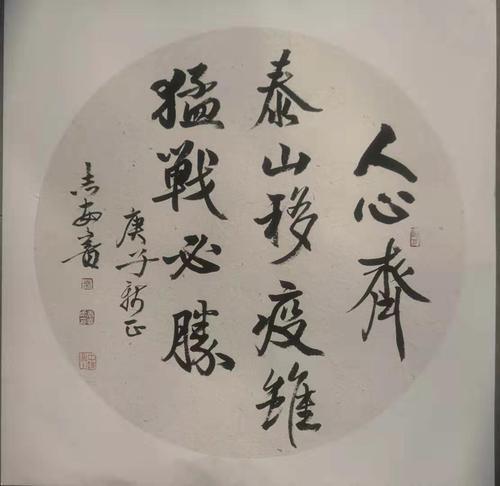 人心齊
泰山移疫雖
猛戰必勝
庚子新正
志安書